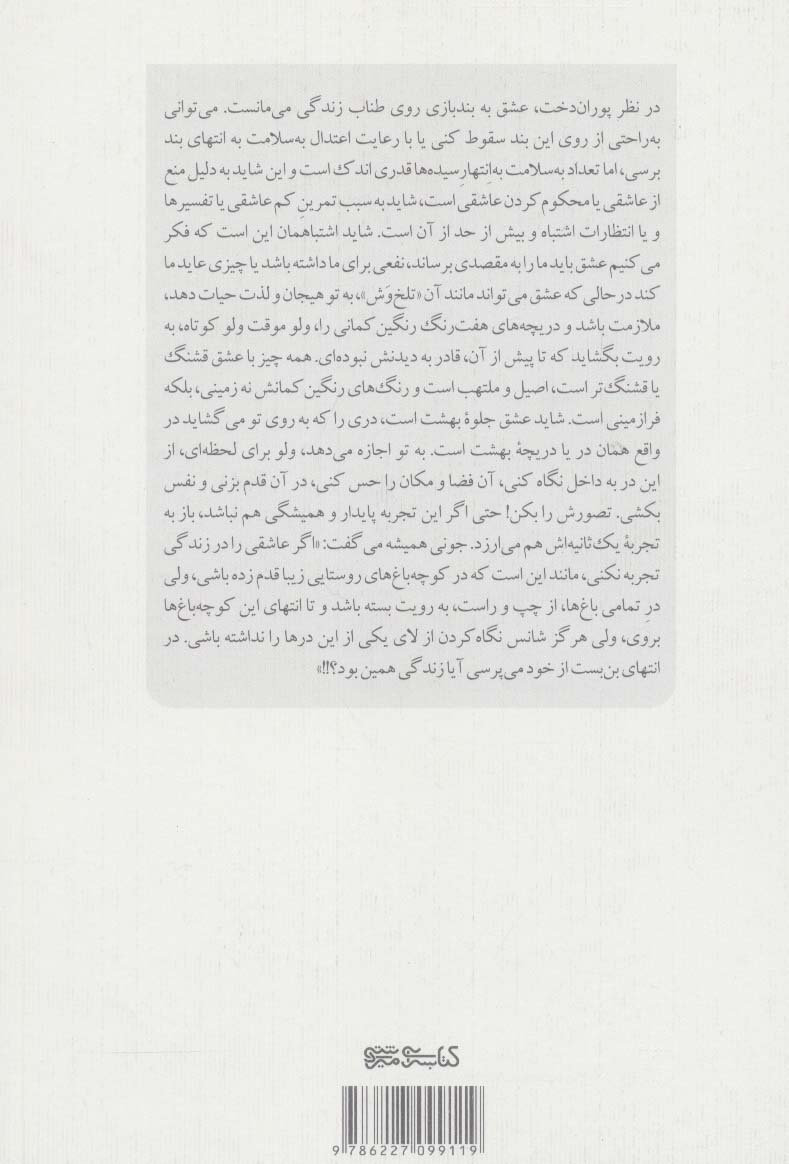 در نظر پوران‌دخت، عشق به بندبازی روی طناب زندگی می‌مانست. می‌توانی
به‌راحتی از روی این بند سقوط کنی یا با رعایت اعتدال به‌سلامت به انتهای بند
برسی، اما تعداد به‌سلامت به‌اِنتهارسیده‌ها قدری اندک است و این شاید به دلیل منع
از عاشقی یا محکوم کردن عاشقی است، شاید به سبب تمرینِ کم عاشقی یا تفسیرها
و یا انتظارات اشتباه و بیش از حد از آن است. شاید اشتباهمان این است که فکر
می‌کنیم عشق باید ما را به مقصدی برساند، نفعی برای ما داشته باشد یا چیزی عاید ما
کند در حالی که عشق می‌تواند مانند آن «تلخ‌وَش»، به تو هیجان و لذت حیات دهد،
ملازمت باشد و دریچه‌های هفت‌رنگ رنگین کمانی را، ولو موقت ولو کوتاه، به
رویت بگشاید که تا پیش از آن، قادر به دیدنش نبوده‌ای. همه چیز با عشق قشنگ
یا قشنگ‌تر است، اصیل و ملتهب است و رنگ‌های رنگین کمانش نه زمینی، بلکه
فرازمینی است. شاید عشق جلوهٔ بهشت است، دری را که به روی تو می‌گشاید در
واقع همان در یا دریچهٔ بهشت است. به تو اجازه می‌دهد، ولو برای لحظه‌ای، از
این در به داخل نگاه کنی، آن فضا و مکان را حس کنی، در آن قدم بزنی و نفس
بکشی. تصورش را بکن! حتی اگر این تجربه پایدار و همیشگی هم نباشد، باز به
تجربهٔ یک‌ثانیه‌اش هم می‌ارزد. جونی همیشه می‌گفت: «اگر عاشقی را در زندگی
تجربه نکنی، مانند این است که در کوچه‌باغ‌های روستایی زیبا قدم زده باشی، ولی
درِ تمامی باغ‌ها، از چپ و راست، به رویت بسته باشد و تا انتهای این کوچه‌باغ‌ها
بروی، ولی هرگز شانس نگاه کردن از لای یکی از این درها را نداشته باشی. در
انتهای بن‌بست از خود می‌پرسی آیا زندگی همین بود؟!!»
کتابسرای میردشتی
9 786227 099119